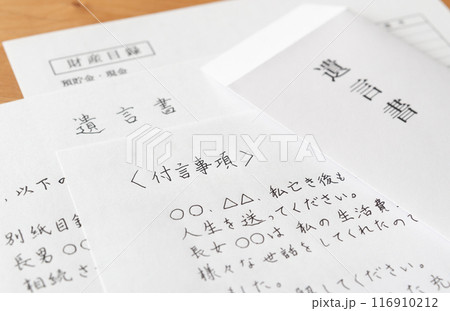 財産目録
預貯金・現金
遺言書
遺言書
、以下。
別紙目録
長男 〇〇
相続さ
〈付言事項〉
〇〇、△△、私亡き後も
人生を送ってください。
長女〇〇は私の生活費、
様々な世話をしてくれたので
ました。
してください。
PIXTA
116910212